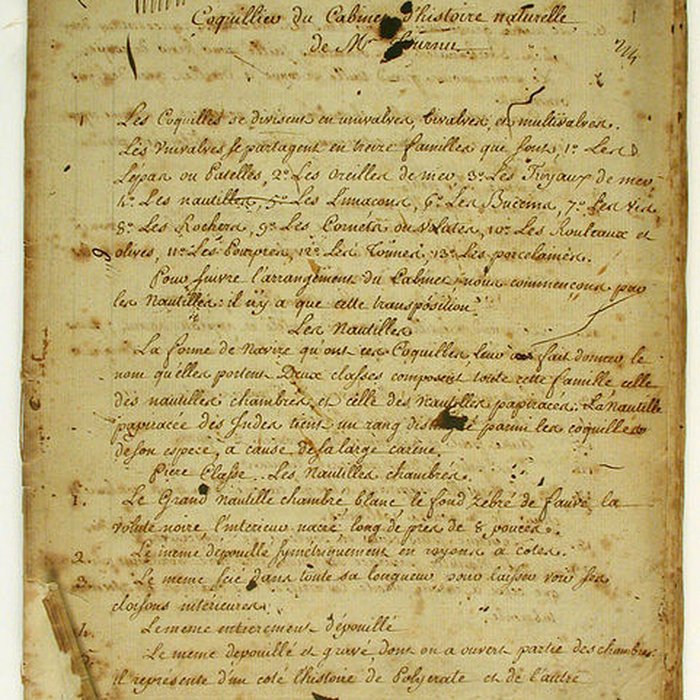 Coquillier du Cabinet d'histoire naturelle
de Mr fournu
1 Les Coquilles se divisent en univalves, bivalves, et multivalves.
Les Univalves se partagent en treize familles que sont, 1º Les
Lepas ou Patelles, 2º Les oreilles de mer 3º Les Tuyaux de mer,
4º Les nautilles, 5º Les Limacons, 6º Les Buccins, 7º Les vis,
8º Les Rochers, 9º Les Cornets ou volutes, 10º Les Rouleaux et
olives, 11º Les Pourpres, 12º Les Tonnes, 13º Les porcelaines.
Pour suivre l'arrangement du Cabinet, nous commençons par
les Nautilles: il n'y a que cette transposition
Les Nautilles
La forme de Navire qu'ont ces Coquilles, leur fait donner le
nom qu'elles portent Deux classes composent toute cette famille celle
des nautilles chambrés, et celle des Nautilles papiracés. La Nautille
papiracée des Indes tient un rang distingué parmi les coquilles
de son espece, a cause de sa large carene.
Piere Classe.. Les Nautilles chambrés.
1. Le Grand nautille chambré blanc le fond zébré de fauve, la
volute noire, l'interieur nacré long de près de 8 pouces.
2. Le même dépouillé symétriquement en rayons a cotes.
3. Le meme scié dans toute sa longueur pour laisser voir ses
cloisons intérieures
4. Le meme entierement dépouillé
5. Le meme depouillé et gravé dont on a ouvert partie des chambres
il represente d'un coté l'histoire de Polycrate et de l'autre